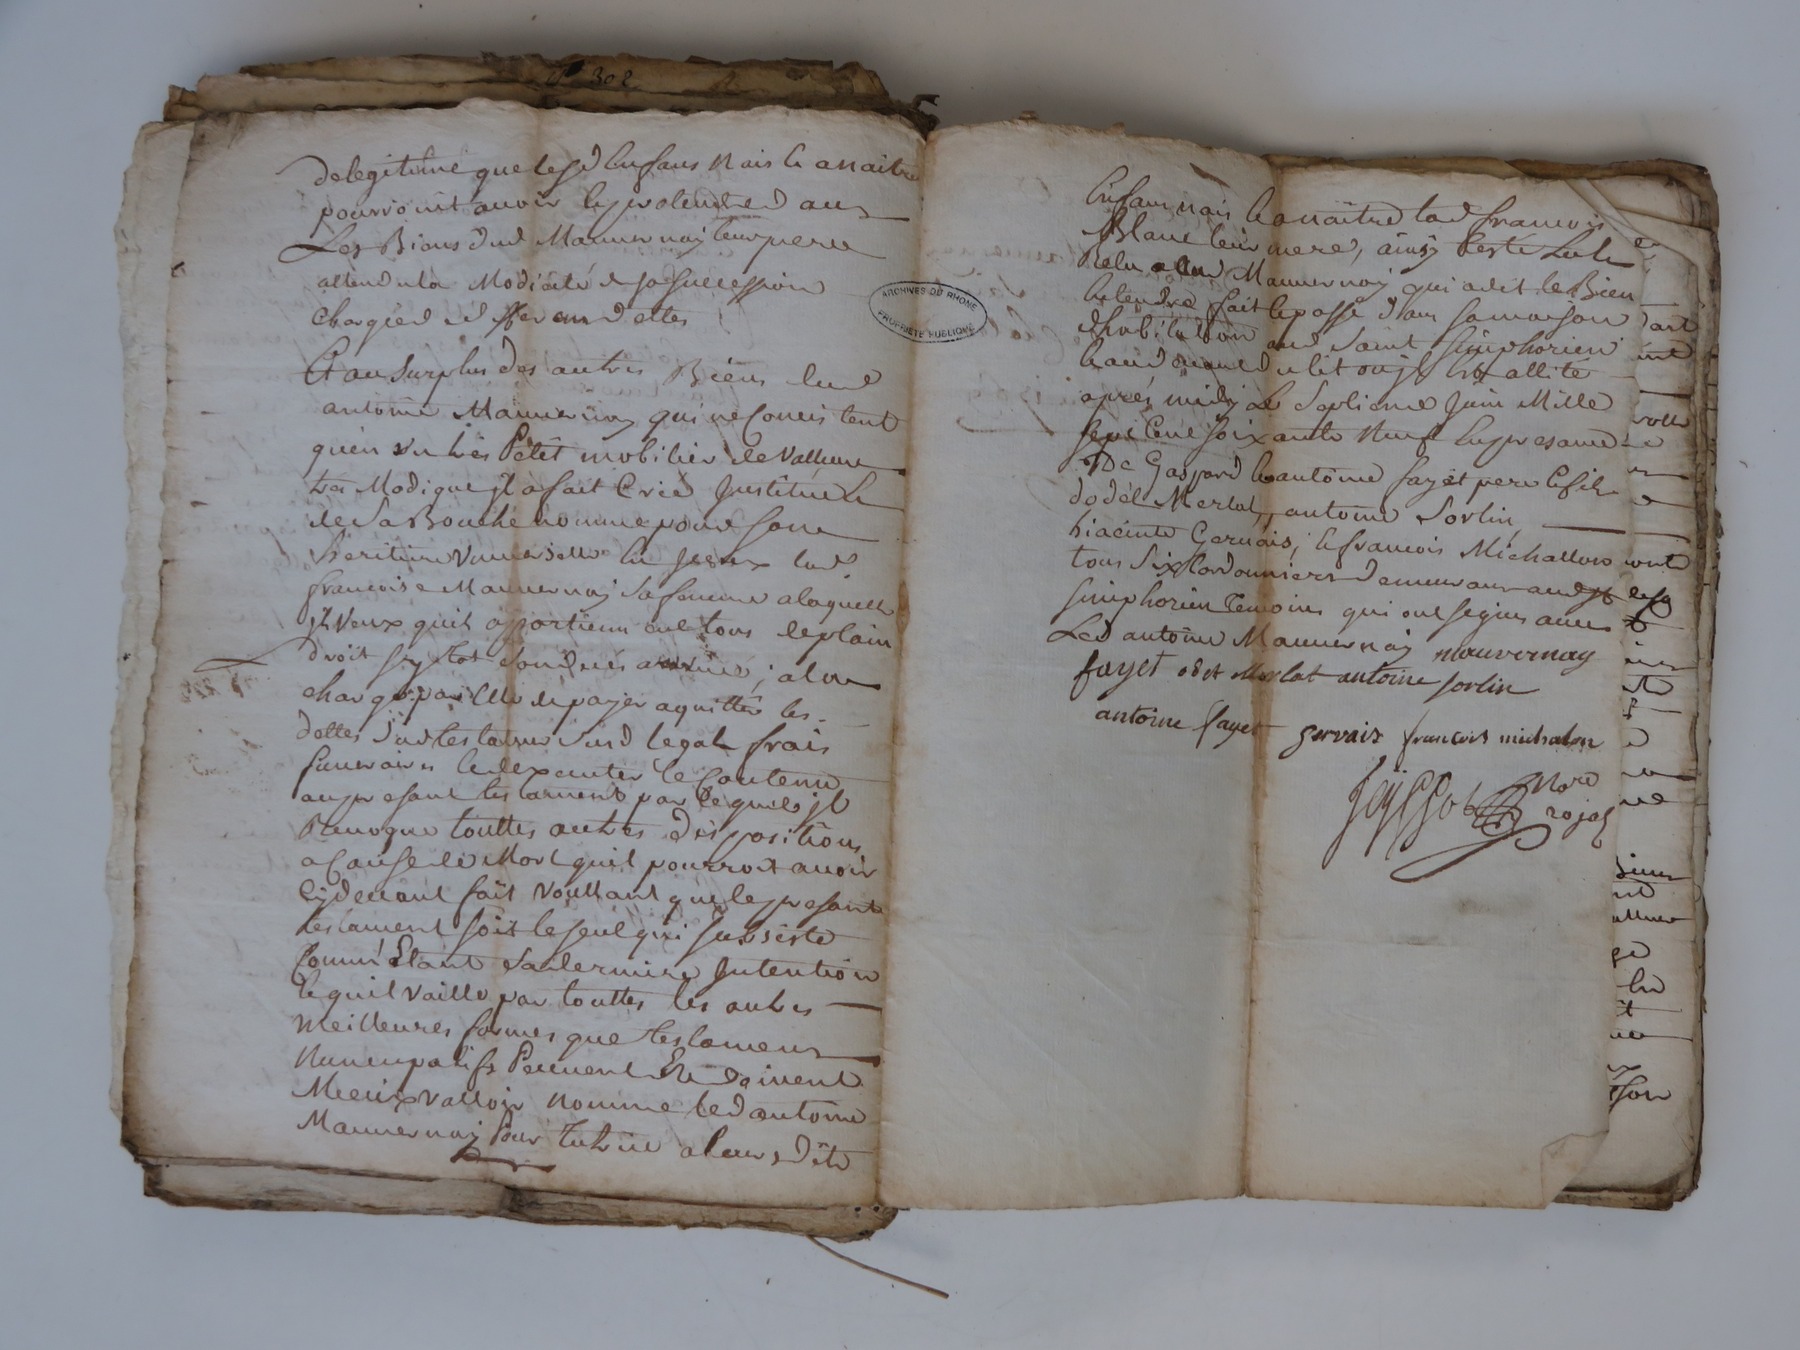 n° 302
delegitime que lesd Enfans nais & a naitre
pourroint avoir & pretendre aux
Les Biens dud Mauvernay leur pere
attendu la Modicité de sa succession
chargée de dettes
Et au Surplus des autres Biens dud
antoine Mauvernay qui ne Consistent
quen un très Petit mobilier de Valleure
très Modique jl a fait Créé Jnstitué &
de Sa Bouche nommé pour Sone
heritiere universelle
françoise Mauvernay Sa femme a laquelle
jl Veux quil apartienne en tous de plain
droit sy tot Son decés arrivé ; a la
charge par Elle de payer aquitter les
dettes dud testateur Susd legat frais
funeraires & dexecuter le Contenu
au presant testament par lequel jl
Revoque touttes autres dispositions
a Cause de Mort quil pourroit avoir
Cydevant fait Voullant que le presant
testament soit le seul qui subsiste
Comm' Etant Sa derniere Jntention
& quil vaille par touttes les autres
meilleures formes que testament
Nuncupatifs Peuvent & doivent
Mieux valloir nomme led antoine
Mauvernay Pour
ARCHIVES DU RHONE
PROPRIÉTÉ PUBLIQUE
Enfans nais & a naître lad françoise
Blanc leur mere, ainsy Testé Lu &
Relu aud Mauvernay qui a dit le Bien
Entendre fait & passé dans sa maison
dhabitation aud Saint Simphorien
& au devant du lit ou jl est allité
après midy Le Septieme Juin Mille
sept Cent soixante Neuf En presance
De Gaspard & antoine fayet pere & fils
Merlat, antoine Sorlin,
hiacinte Gervais, & françois Michallon
tous Six Cordonniers demeurans aud St
Simphorien temoins qui ont signés avec
Led antoine Mauvernay mauvernay
fayet odet Merlat antoine sorlin
antoine fayet gervais francois michalon
Nore
rojal